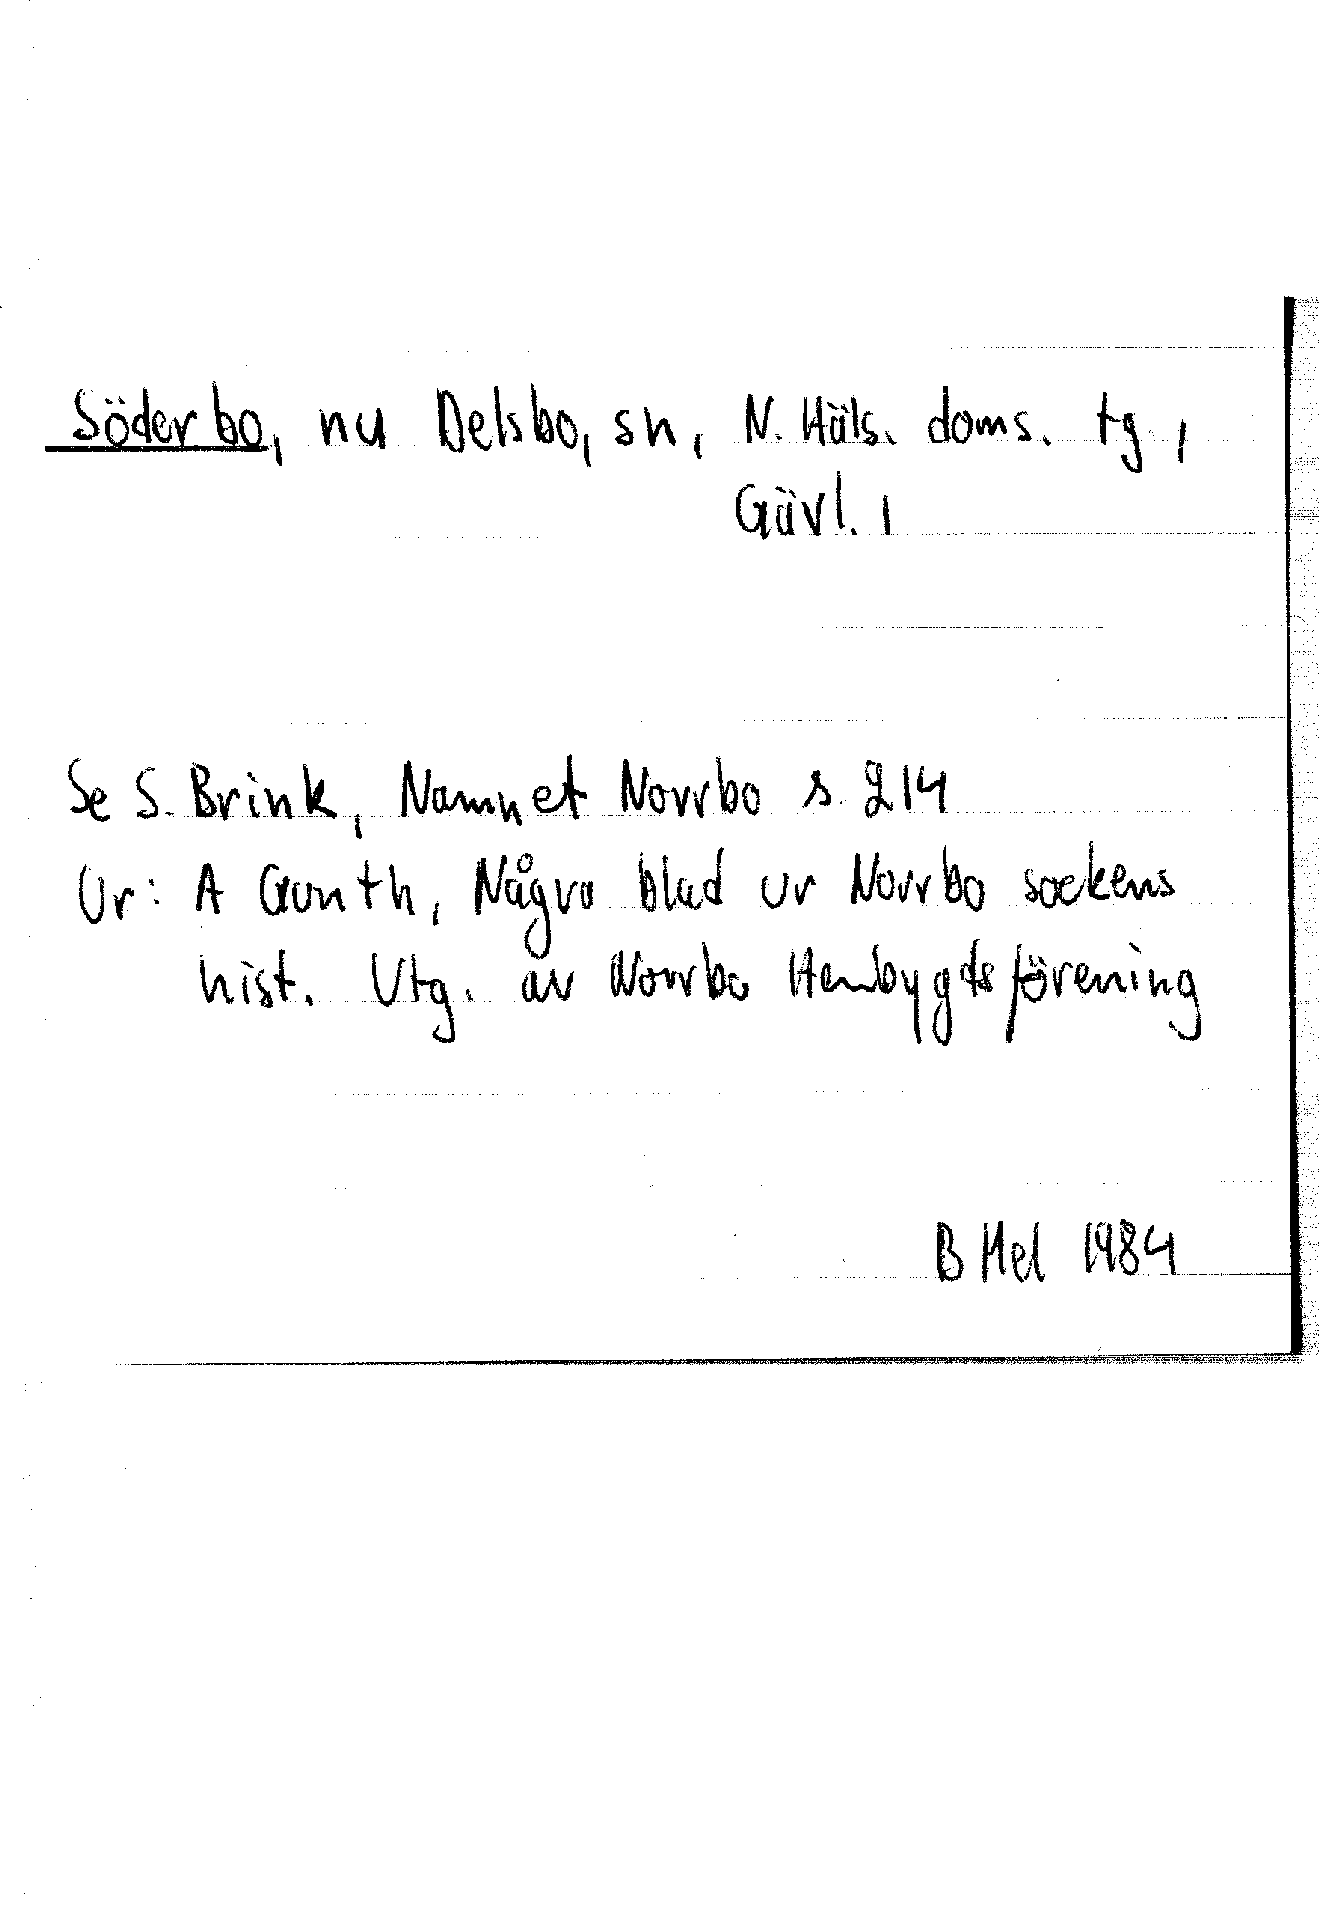 Söderbo, nu Delsbo, sn, N. Häls. doms. tg,
Gävl. l
Se S. Brink, Namnet Norrbo s. 214
Ur: A Gonth, Några blad ur Norrbo sockens
hist. Utg. av Norrbo Hembygdsförening
B Mel 1984